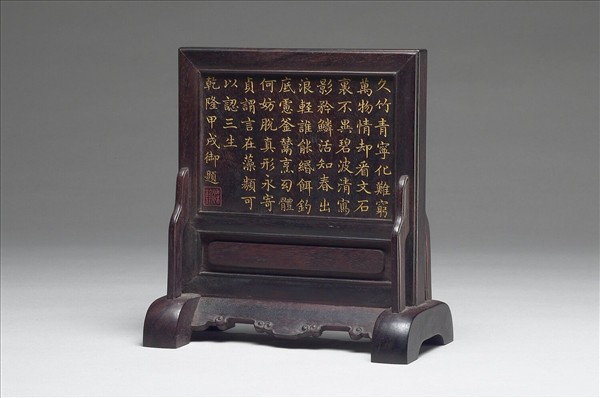 久竹青寧化難窮
萬物情却看文石
裏不異碧波清寫
影矜鱗活知春出
浪輕誰能緡餌釣
底慮釜鬵烹幻體
何妨脫真形永寄
貞謂言在藻頻可
以認三生
乾隆甲戌御題